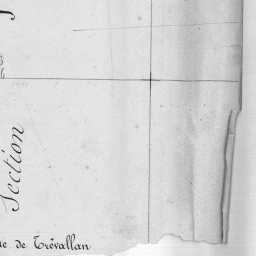 Section
de Trévallan